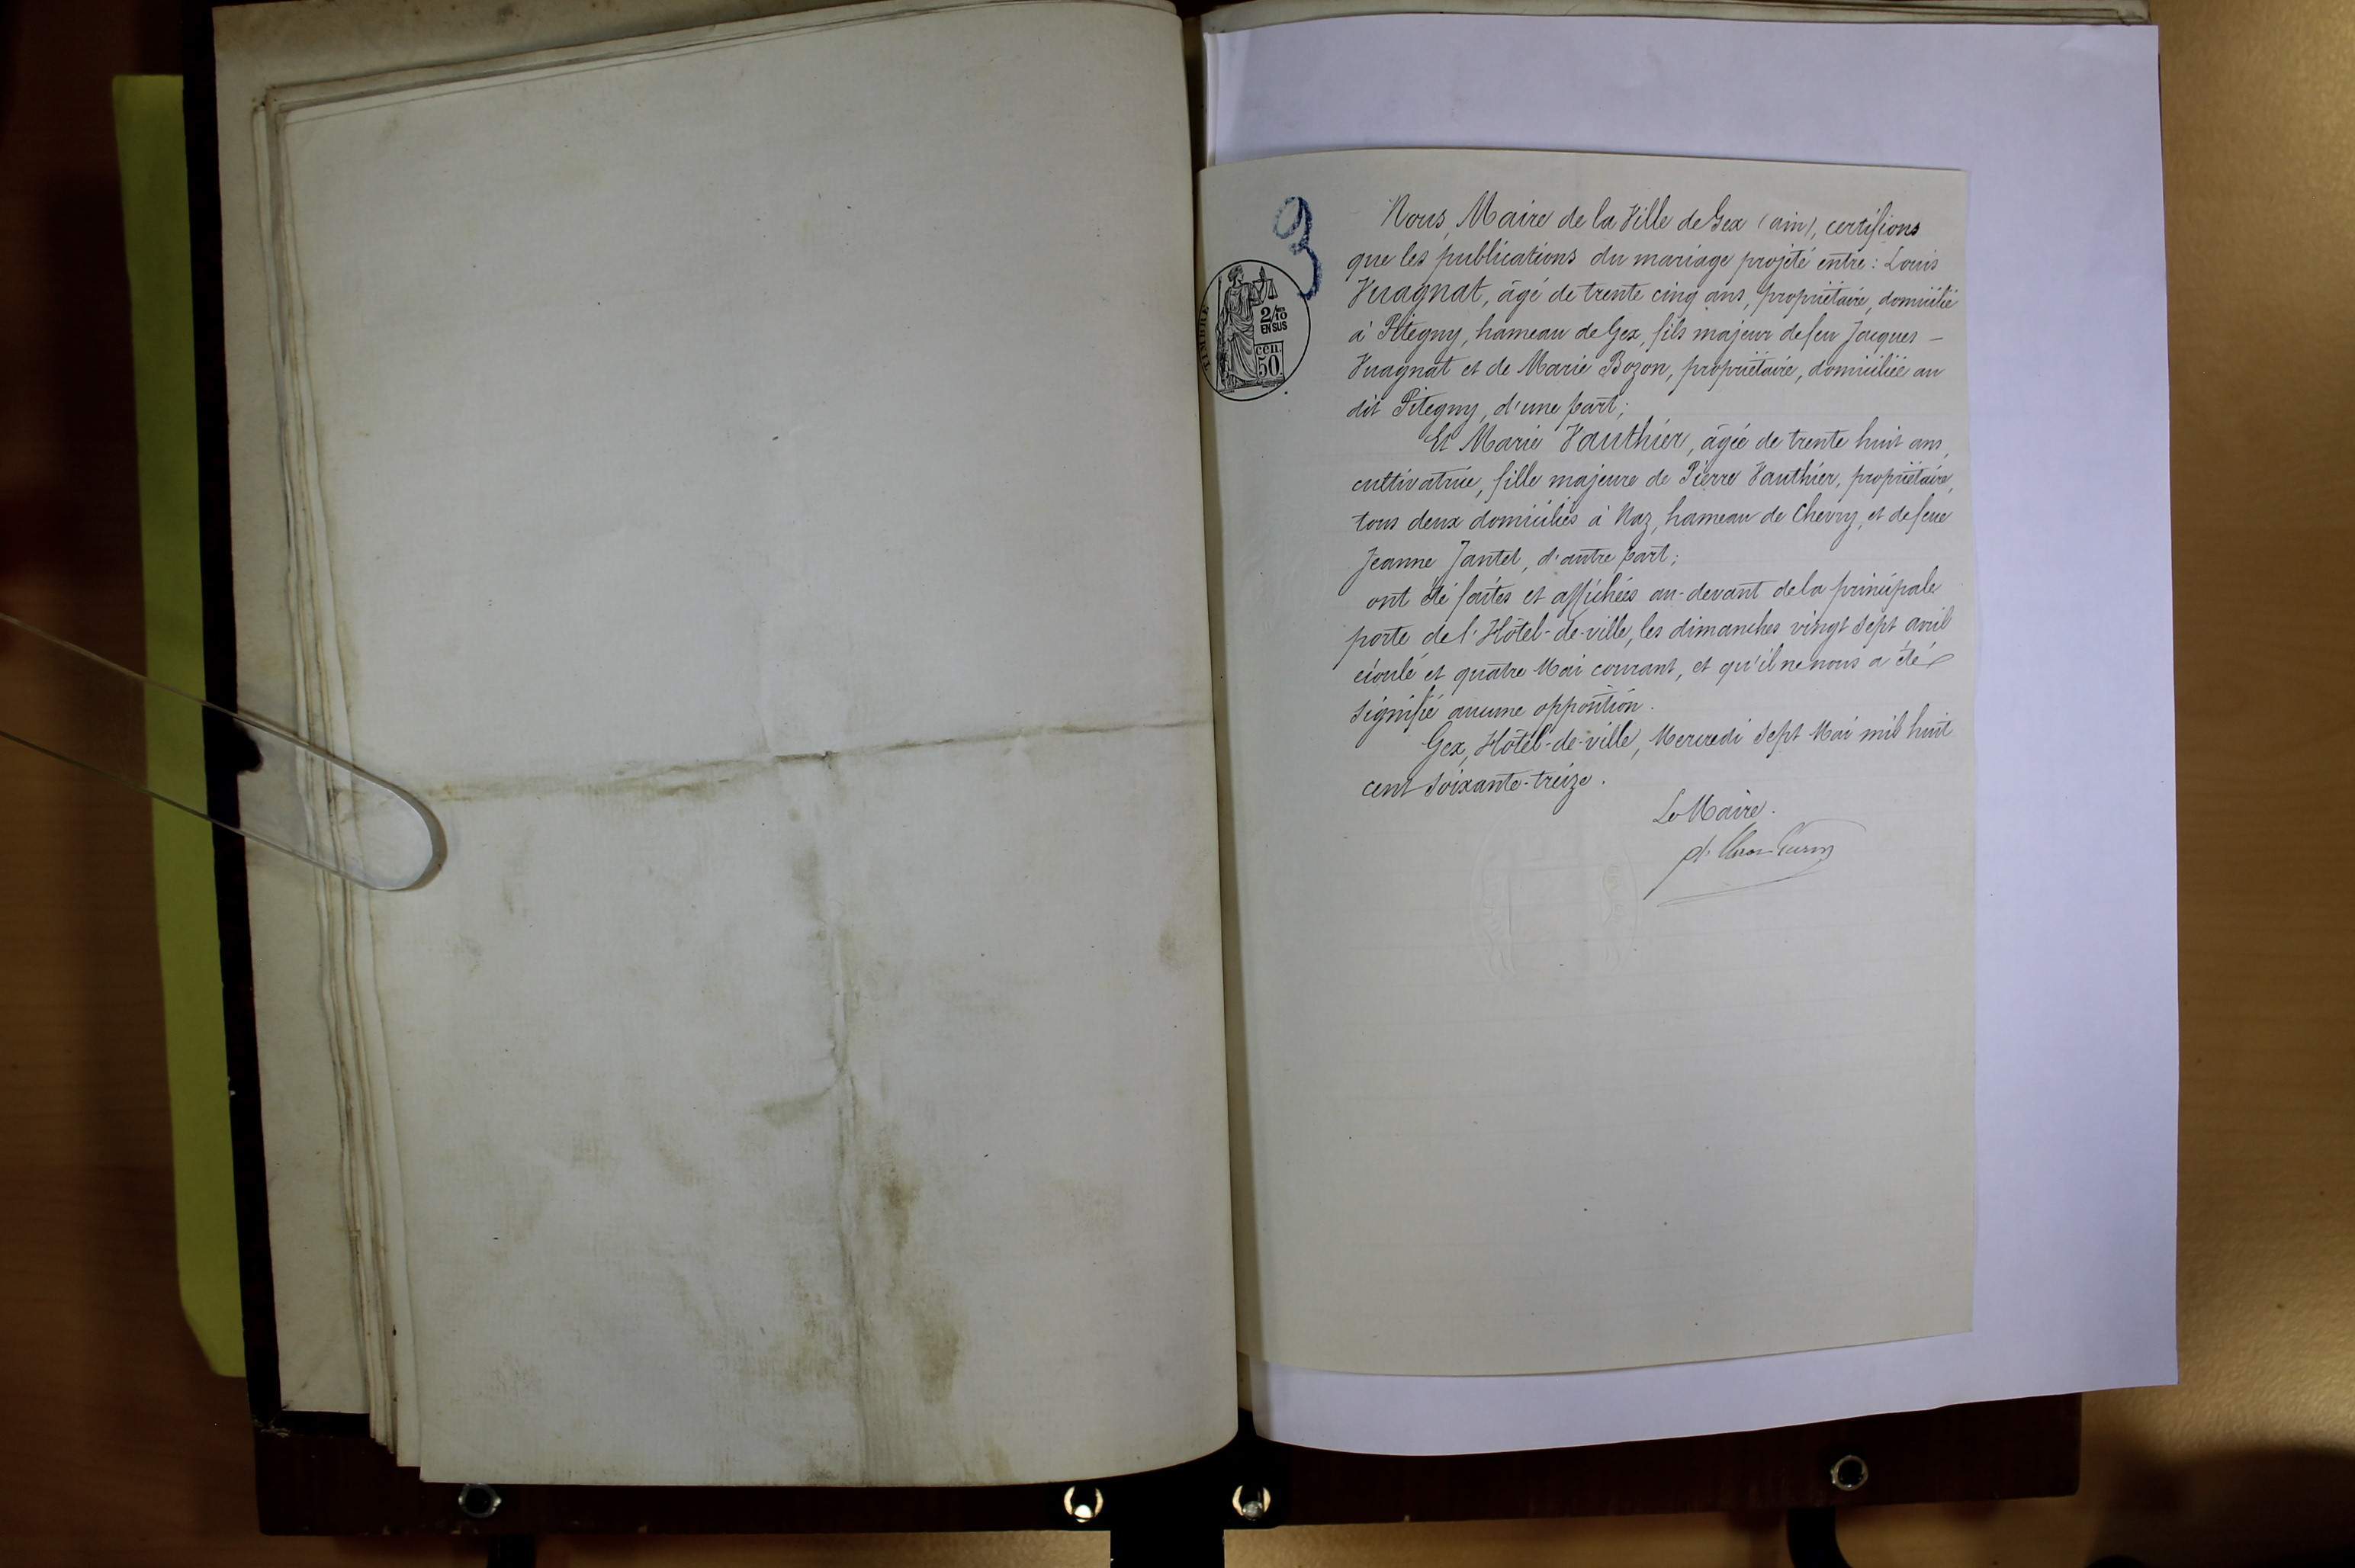 3
TIMBRE
2/10
EN SUS
cen.
50.
Nous, Maire de la Ville de Gex (ain), certifions
que les publications du mariage projeté entre : Louis
Vuagnat, âgé de trente cinq ans, propriétaire, domicilié
à Pitegny, hameau de Gex, fils majeur de feu Jacques –
Vuagnat et de Marie Bozon, propriétaire, domiciliée au
dit Pitegny, d'une part;
Et Marie Vauthier, âgée de trente huit ans,
cultivatrice, fille majeure de Pierre Vauthier, propriétaire,
tous deux domiciliés à Naz, hameau de Chevry, et de feue
Jeanne Jantet, d'autre part;
ont été faites et affichées au-devant de la principale
porte de l'Hôtel-de-ville, les dimanches vingt sept avril
écoulé et quatre Mai courant, et qu'il ne nous a été
signifié aucune opposition.
Gex, Hôtel-de-ville, Mercredi sept Mai mil huit
cent soixante-treize.
Le Maire.